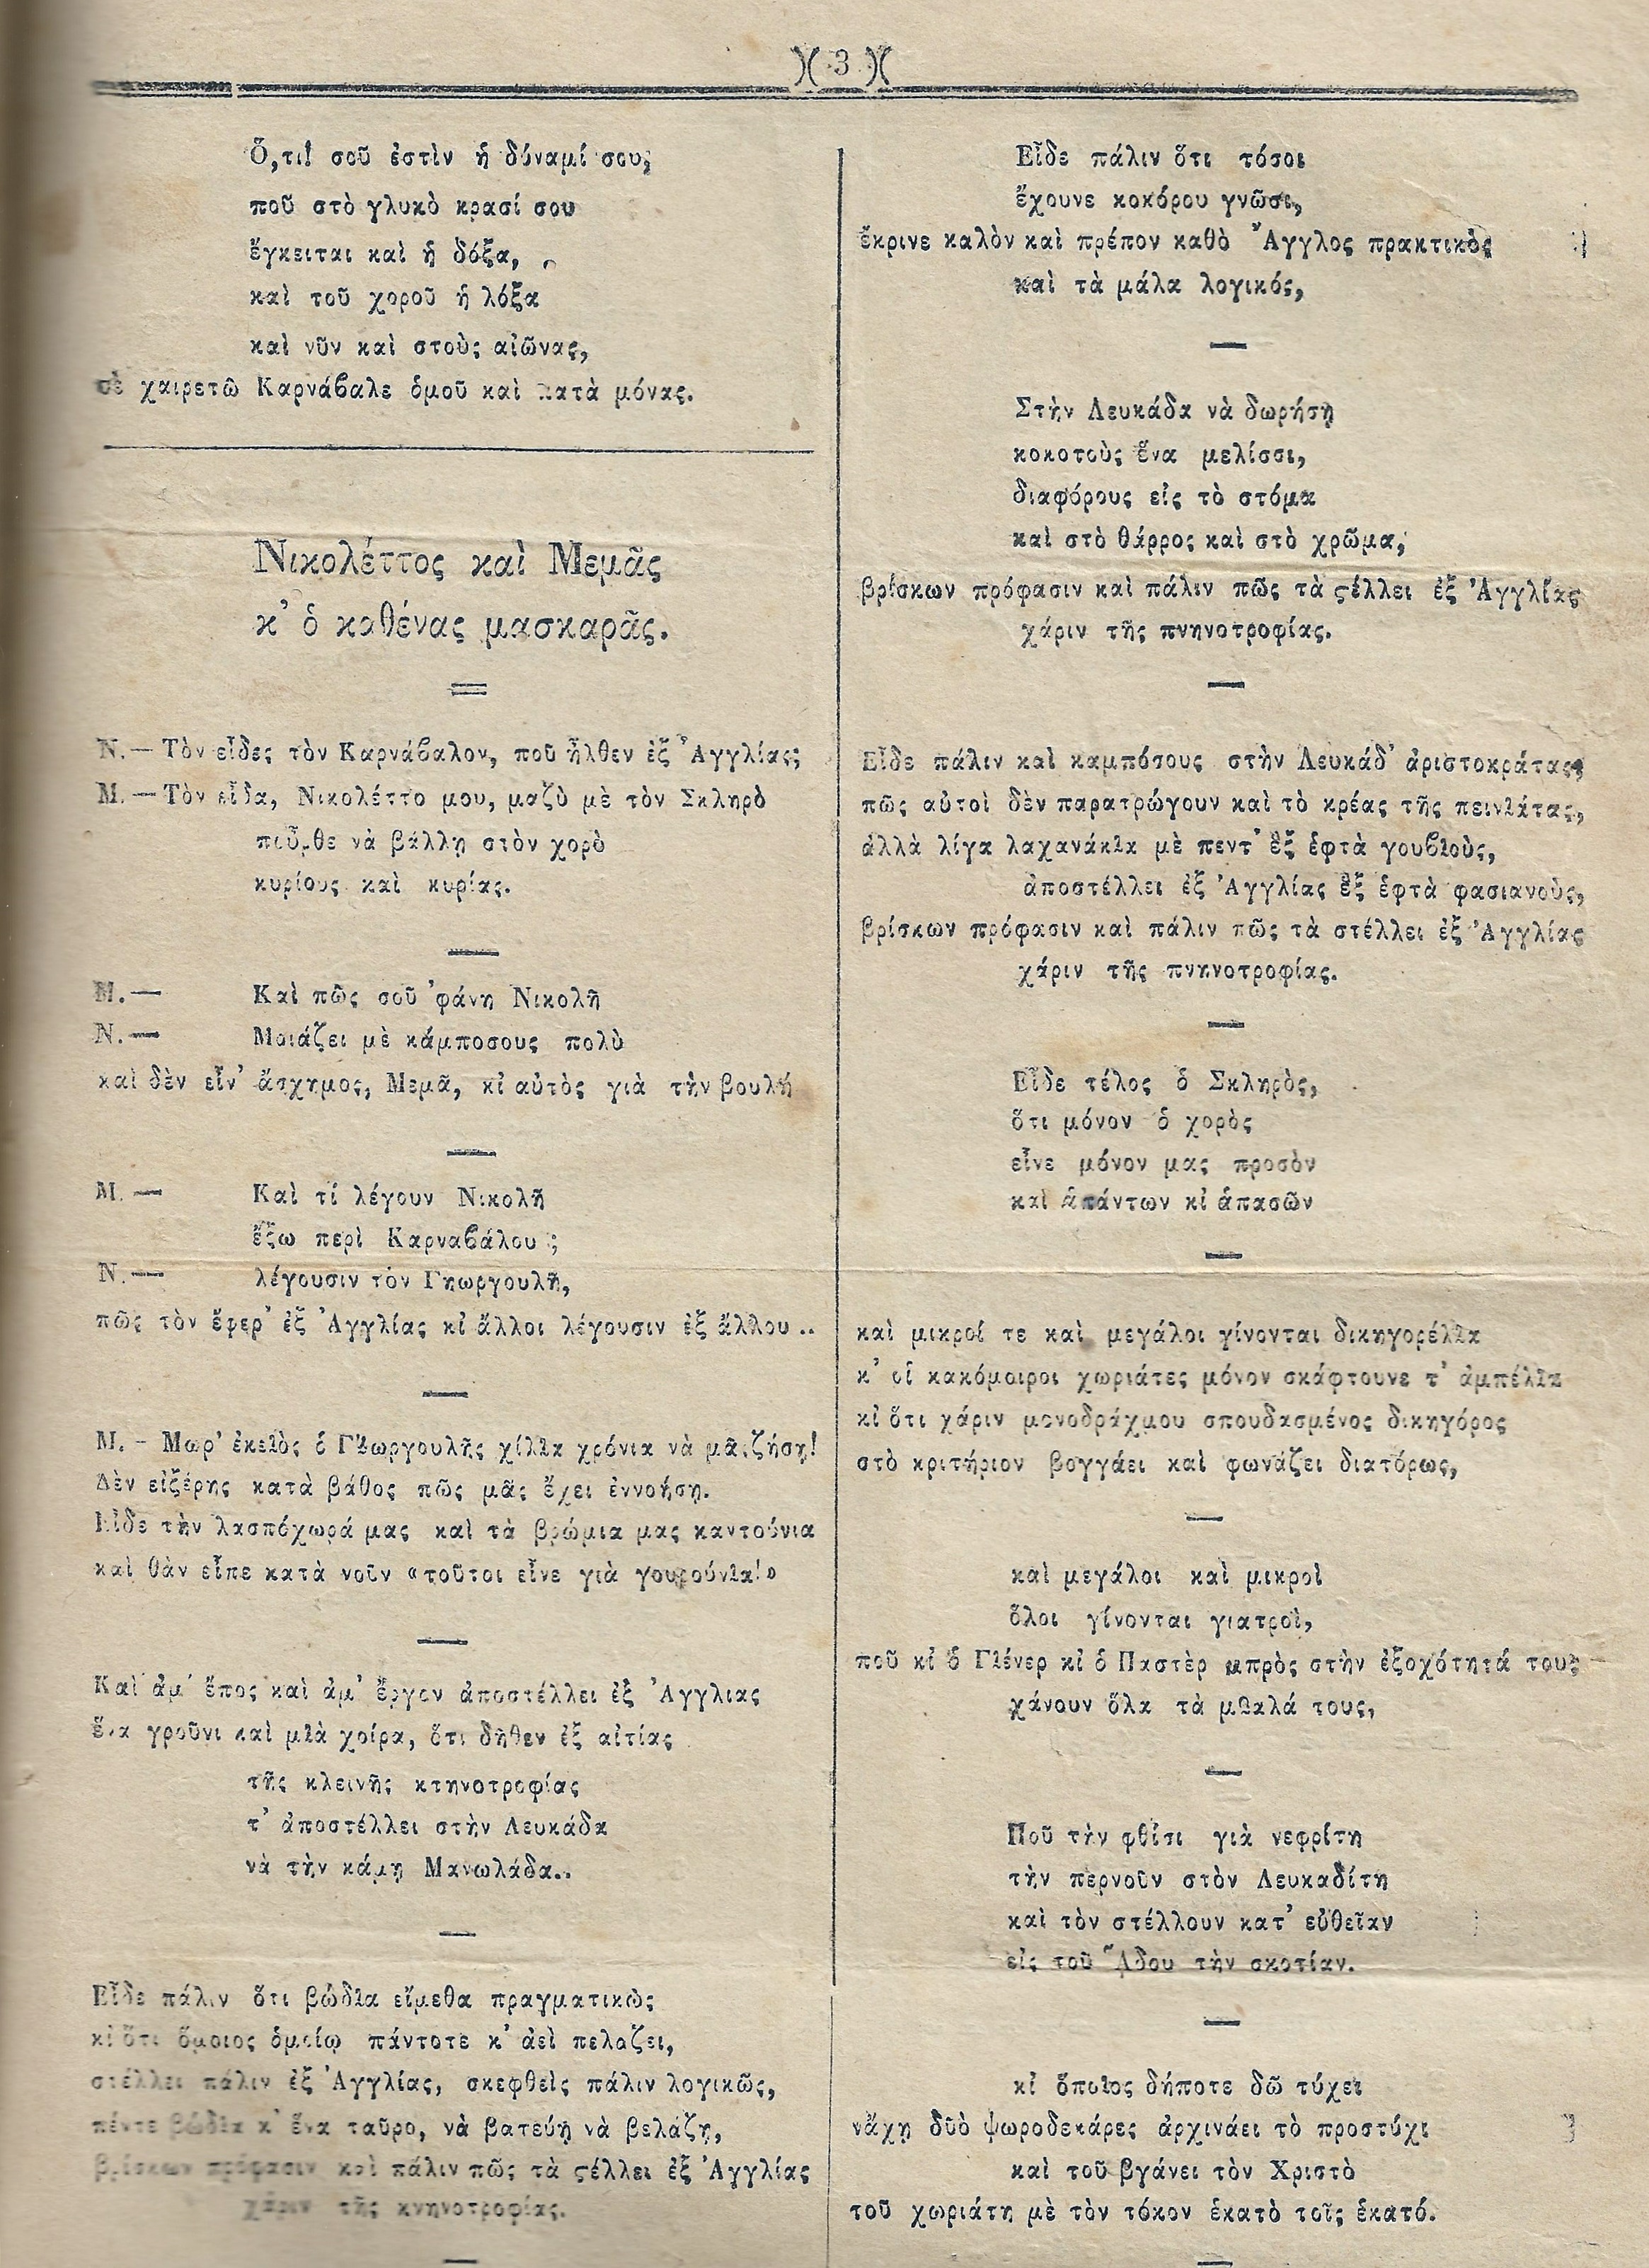 )( 3 )(
Ὅ,τι! σοῦ ἐστὶν ἡ δύναμί σου,
ποῦ στὸ γλυκὸ κρασί σου
ἔγκειται καὶ ἡ δόξα,
καὶ τοῦ χοροῦ ἡ λόξα
καὶ νῦν καὶ στοὺς αἰῶνας,
σὲ χαιρετῶ Καρνάβαλε ὁμοῦ καὶ κατὰ μόνας.
Νικολέττος καὶ Μεμᾶς
κ’ ὁ καθένας μασκαρᾶς.
Ν.— Τὸν εἶδες τὸν Καρνάβαλον, ποῦ ἦλθεν ἐξ Ἀγγλίας;
Μ.— Τὸν εἶδα, Νικολέττο μου, μαζὺ μὲ τὸν Σκληρὸ
ποὖρθε νὰ βάλλῃ στὸν χορὸ
κυρίους καὶ κυρίας.
Μ.— Καὶ πῶς σοῦ ’φάνη Νικολῆ
Ν.— Μοιάζει μὲ κάμποσους πολὺ
καὶ δὲν εἶν’ ἄσχημος, Μεμᾶ, κἰ αὐτὸς γιὰ τὴν βουλή
Μ.— Καὶ τί λέγουν Νικολῆ
ἔξω περὶ Καρναβάλου ;
Ν.— λέγουσιν τὸν Γηωργουλῆ,
πῶς τὸν ἔφερ’ ἐξ Ἀγγλίας κἰ ἄλλοι λέγουσιν ἐξ ἄλλου ..
Μ. – Μωρ’ ἐκειὸς ὁ Γιωργουλῆς χίλια χρόνια νὰ μᾶς ζήσῃ!
Δὲν εἰξέρης κατὰ βάθος πῶς μᾶς ἔχει ἐννοήση.
Εἶδε τὴν λασπόχωρά μας καὶ τὰ βρώμια μας καντούνια
καὶ θὰν εἶπε κατὰ νοῦν «τοῦτοι εἶνε γιὰ γουρούνια!»
Καὶ ἁμ’ ἔπος καὶ ἁμ’ ἔργον ἀποστέλλει ἐξ Ἀγγλιας
ἕνα γροῦνι καὶ μιὰ χοίρα, ὅτι δῆθεν ἐξ αἰτίας
τῆς κλεινῆς κτηνοτροφίας
τ’ ἀποστέλλει στὴν Λευκάδα
νὰ τὴν κάμῃ Μανωλάδα..
Εἶδε πάλιν ὅτι βώδια εἴμεθα πραγματικῶς
κἰ ὅτι ὅμοιος ὁμοίῳ πάντοτε κ’ ἀεὶ πελαζει,
στέλλει πάλιν ἐξ Ἀγγλίας, σκεφθεὶς πάλιν λογικῶς,
πέντε βώδια κ’ ἕνα ταῦρο, νὰ βατεύῃ νὰ βελάζῃ,
βρίσκων πρόφασιν καὶ πάλιν πῶς τὰ ϛέλλει ἐξ Ἀγγλίας
χάριν τῆς κνηνοτροφίας.
Εἶδε πάλιν ὅτι τόσοι
ἔχουνε κοκόρου γνῶσι,
ἔκρινε καλὸν καὶ πρέπον καθὸ Ἄγγλος πρακτικὸς
καὶ τὰ μάλα λογικός,
Στὴν Λευκάδα νὰ δωρήσῃ
κοκοτοὺς ἕνα μελίσσι,
διαφόρους εἰς τὸ στόμα
καὶ στὸ θάρρος καὶ στὸ χρῶμα,
βρίσκων πρόφασιν καὶ πάλιν πῶς τὰ ϛέλλει ἐξ Ἀγγλίας
χάριν τῆς πνηνοτροφίας.
Εἶδε πάλιν καὶ καμπόσους στὴν Λευκάδ’ ἀριστοκράτας,
πῶς αὐτοὶ δὲν παρατρώγουν καὶ τὸ κρέας τῆς πεινιάτας,
ἀλλὰ λίγα λαχανάκια μὲ πεντ’ ἓξ ἑφτὰ γουβιοὺς,
ἀποστέλλει ἐξ Ἀγγλίας ἓξ ἑφτὰ φασιανοὺς,
βρίσκων πρόφασιν καὶ πάλιν πῶς τὰ στέλλει ἐξ Ἀγγλίας
χάριν τῆς πνηνοτροφίας.
Εἶδε τέλος ὁ Σκληρὸς,
ὅτι μόνον ὁ χορὸς
εἶνε μόνον μας προσὸν
καὶ ἁπάντων κἰ ἁπασῶν
καὶ μικροί τε καὶ μεγάλοι γίνονται δικηγορέλια
κ’ οἱ κακόμοιροι χωριάτες μόνον σκάφτουνε τ’ ἀμπέλια
κἰ ὅτι χάριν μονοδράχμου σπουδασμένος δικηγόρος
στὸ κριτήριον βογγάει καὶ φωνάζει διατόρως,
καὶ μεγάλοι καὶ μικροὶ
ὅλοι γίνονται γιατροὶ,
ποῦ κἰ ὁ Γιένερ κἰ ὁ Παστὲρ μπρὸς στὴν ἐξοχότητά τους
χάνουν ὅλα τὰ μυαλά τους,
Ποῦ τὴν φθίσι γιὰ νεφρίτη
τὴν περνοῦν στὸν Λευκαδίτη
καὶ τὸν στέλλουν κατ’ εὐθεῖαν
εἰς τοῦ Ἅδου τὴν σκοτίαν.
κἰ ὅποιος δήποτε δῶ τύχει
νἄχῃ δῦὸ ψωροδεκάρες ἀρχινάει τὸ προστύχι
καὶ τοῦ βγάνει τὸν Χριστὸ
τοῦ χωριάτη μὲ τὸν τόκον ἑκατὸ τοῖς ἑκατό.